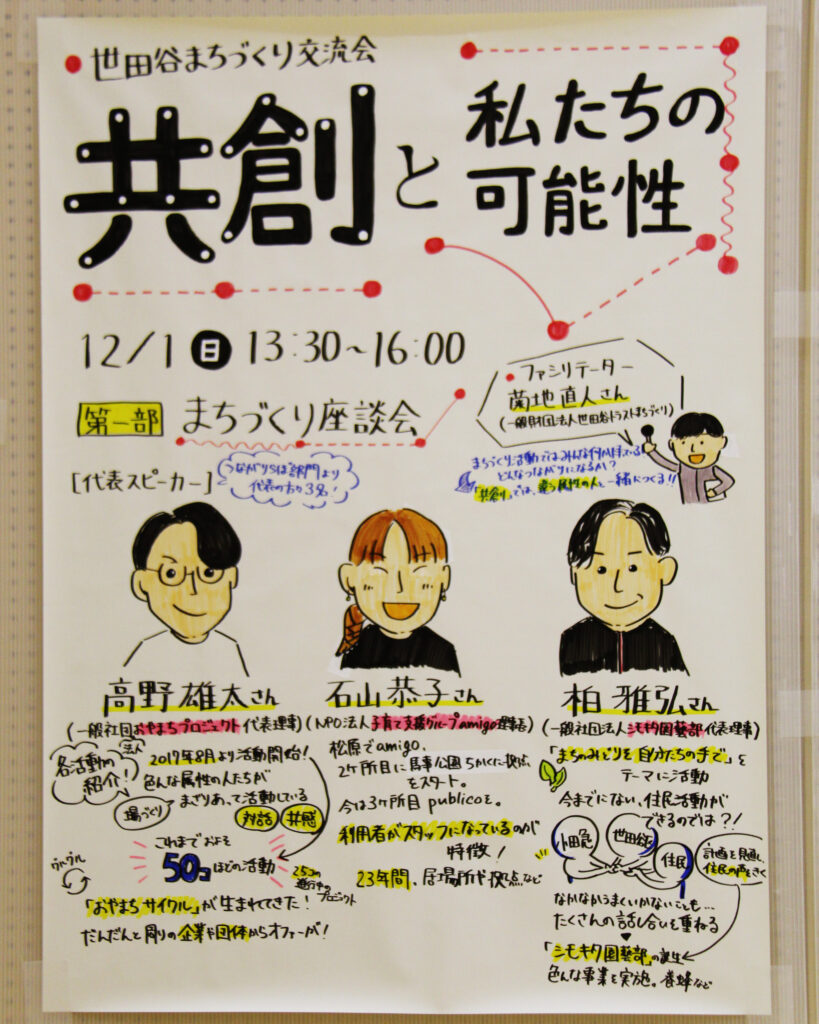 世田谷まちづくり交流会
共創と私たちの可能性
12/1 日 13:30~16:00
第一部 まちづくり座談会
ファシリテーター
菊地 直人さん
(一般財団法人世田谷トラストまちづくり)
[代表スピーカー]
つながりSは部門より
代表の方々3名!
まちづくり活動ではみんな何か持っている
どんなつながりになるか?
「共創」では、違う属性の人と一緒につくる!!
高野 雄太さん
(一般社団法人おやまちプロジェクト代表理事)
各活動の
紹介!
2017年8月より活動開始!
色んな属性の人たちが
まざりあって活動している
場づくり
対話 共感
これまでおよそ
50コほどの活動
25コの
進行中の
プロジェクト
グルグル
「おやまちサイクル」が生まれてきた!
だんだんと周りの企業や団体からオファーが!
石山 恭子さん
(NPO法人子育て支援グループamigo理事長)
松原でamigo、
2ヶ所目に馬事公園ちかくに拠点
をスタート。
今は3ヶ所目publicoを。
利用者がスタッフになっているのが
特徴!
23年間、居場所や拠点など
柏 雅弘さん
(一般社団法人シモキタ園藝部代表理事)
「まちのみどりを自分たちの手で」を
テーマに活動
今までにない、住民活動が
できるのでは?!
小田急
世田谷区
住民
計画を見直し
住民の声をきく
なかなかうまくいかないことも…
たくさんの話し合いを重ねる
「シモキタ園藝部」の誕生
色んな事業を実施。養蜂など